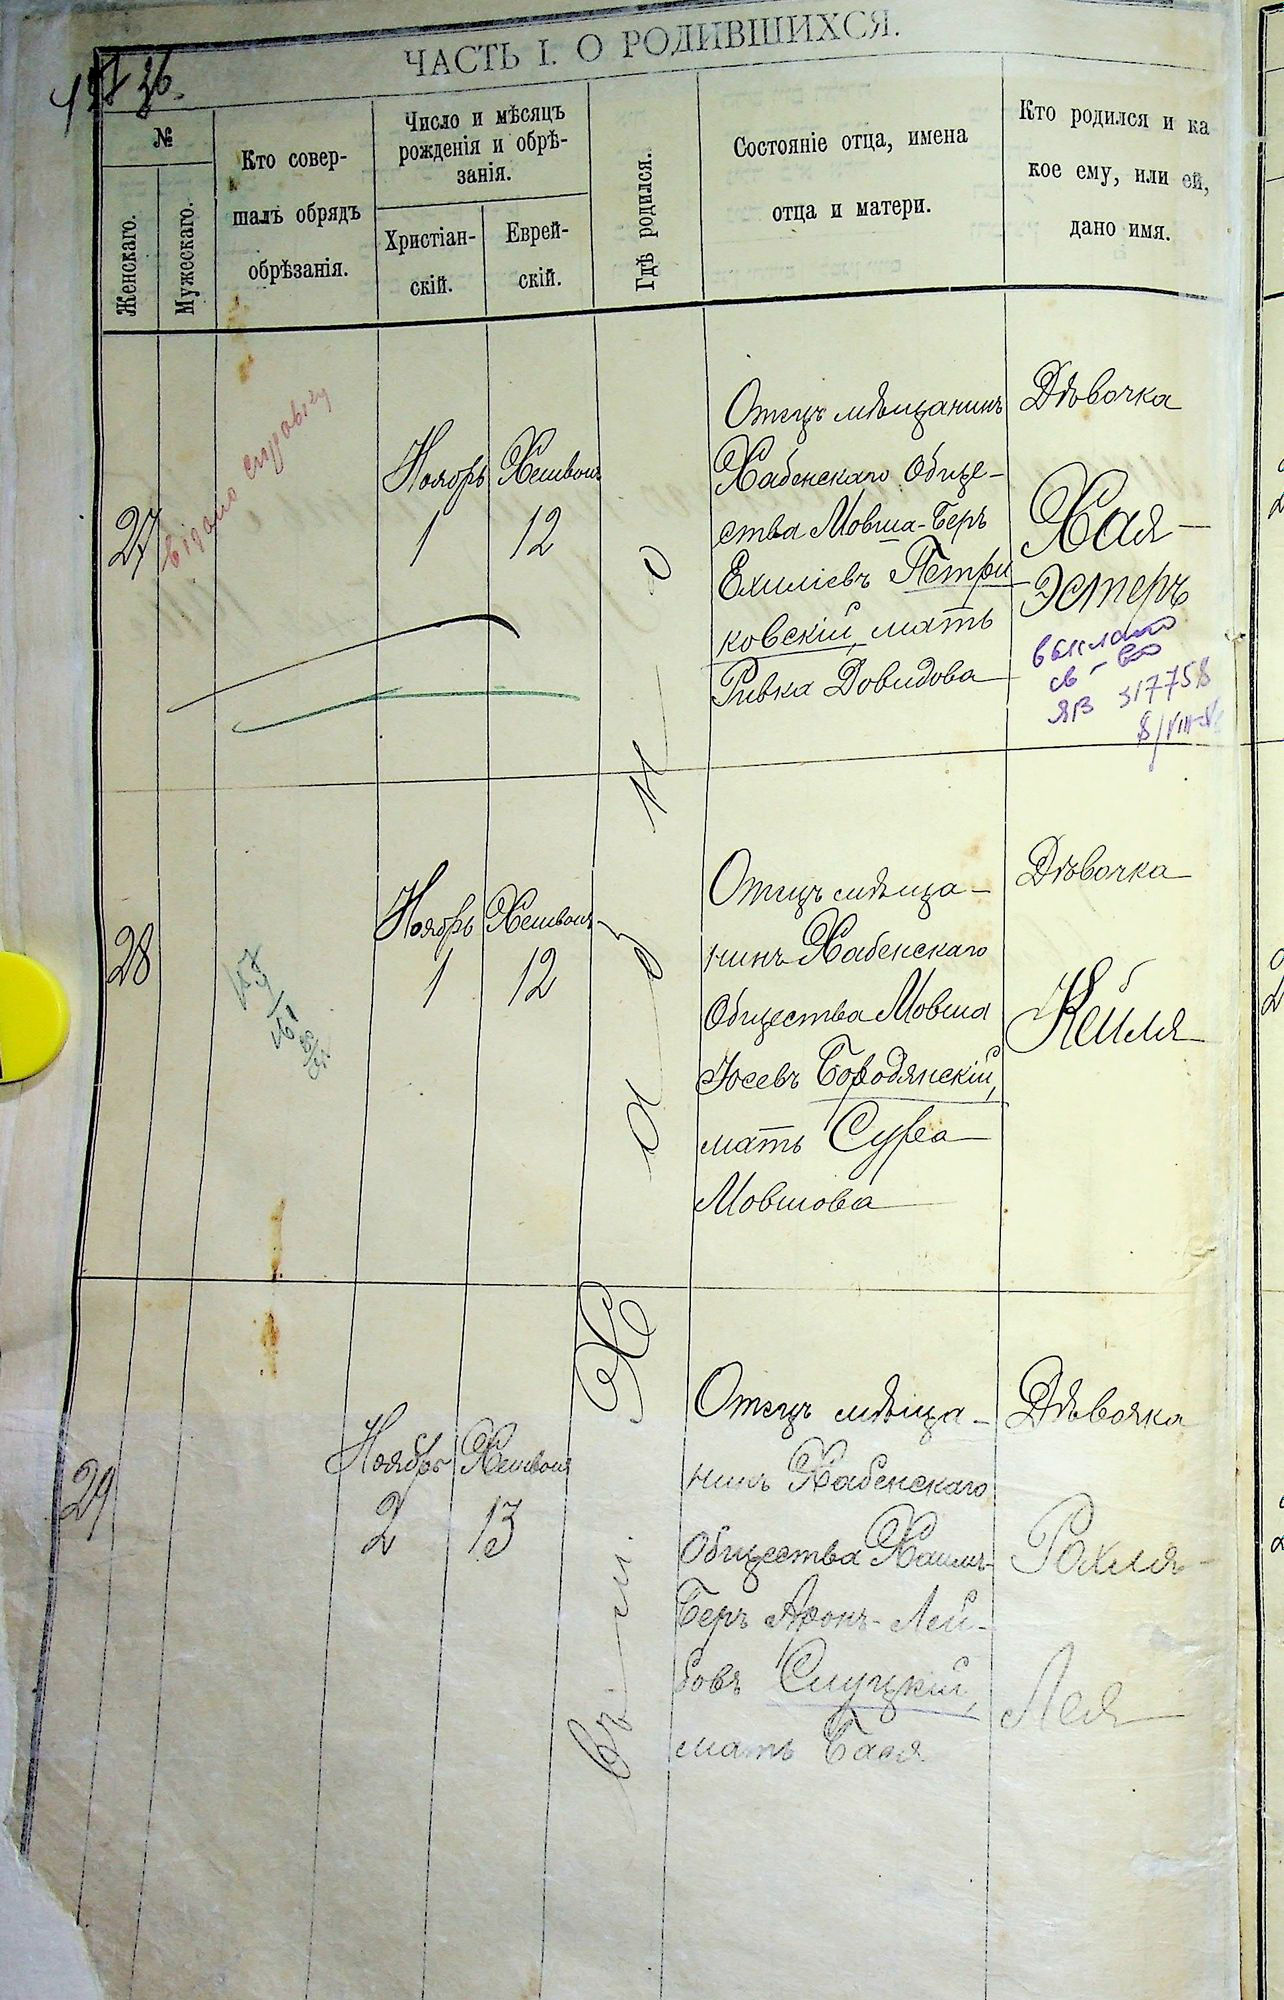 ЧАСТЬ I. О РОДИВШИХСЯ.
№
Женскаго.
Мужескаго.
Кто совер-
шалъ обрядъ
обрѣзанія.
Число и мѣсяцъ
рожденія и обрѣ-
занія.
Христіан-
скій.
Еврей-
скій.
Гдѣ родился.
Состояніе отца, имена
отца и матери.
Кто родился и ка
кое ему, или ей,
дано имя.
27
видано справку
Ноябрь
1
Хешвонъ
12
Отецъ мѣщанинъ
Хабенскаго Обще-
ства Мовша-Беръ
Ехиліевъ Петри
ковскій, мать
Ривка Довидова
Дѣвочка
Хая-
Эстеръ
св-во
ЯВ 317758
28
Ноябрь
1
Хешвонъ
12
Отецъ мѣща-
нинъ Хабенскаго
Общества Мовша
Іосевъ Бородянскій,
мать Сура
Мовшова
Дѣвочка
Кейля
въ м. Хабно
29
Ноябрь
2
Хешвонъ
13
Отецъ мѣща-
нинъ Хабенскаго
Общества Хаимъ-
Беръ Аронъ-Лей-
бовъ Слуцкій,
мать Бася
Дѣвочка
Рахля-
Лея